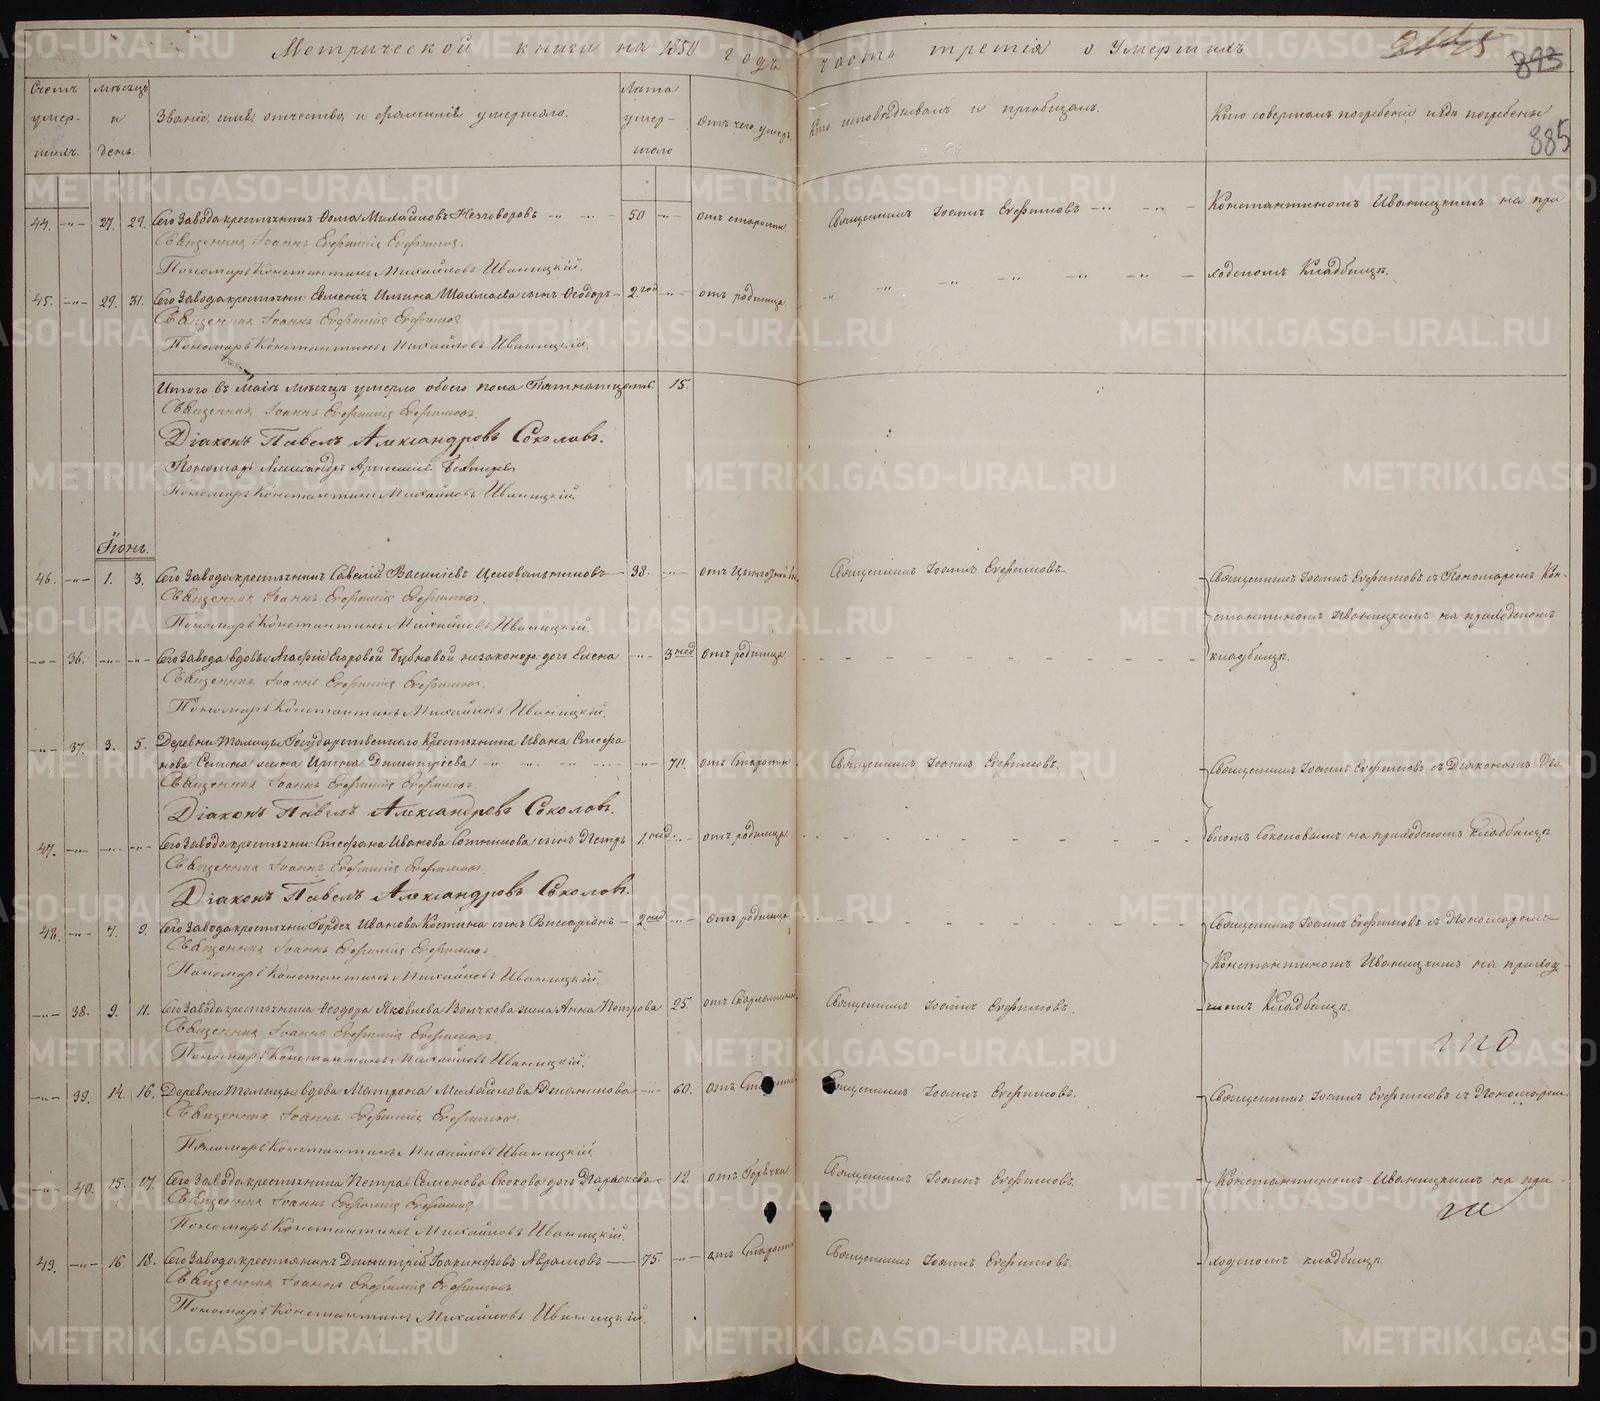 Метрической книги на 1850 годъ часть третія о умершихъ
893
885
Счетъ умер-шихъ.
Мѣсяцъ и день.
Званіе, имя, отчество, и фамилія умершаго.
Лѣта умер-шаго
Отъ чего умеръ.
Кто исповѣдывалъ и пріобщалъ.
Кто совершалъ погребеніе и гдѣ погребены
44. 27. 29. Сего Завода крестьянинъ Ѳома Михайловъ 50 отъ старости Священникъ Іоаннъ Евфимовъ Константиномъ Иваницкимъ на при-
Священникъ Іоаннъ Евфиміевъ Евфимовъ.
Пономарь Константинъ Михайловъ Иваницкій.
ходскомъ Кладбищѣ.
45. 29. 31. Сего Завода крестьянин: Ильина сынъ Ѳеодоръ 2. год отъ родимца
Священникъ Іоаннъ Евфиміевъ Евфимовъ
Пономарь Константинъ Михайловъ Иваницкій.
Итого въ Маѣ мѣсяцѣ умерло обоего пола Пятнатцать. 15.
Священникъ Іоаннъ Евфиміевъ Евфимовъ.
Діаконъ Павелъ Александровъ Соколовъ.
Пономарь Александръ
Пономарь Константинъ Михайловъ Иваницкій.
Іюнь.
46. 1. 3. Сего Завода крестьянинъ Савелій Василіевъ Целовальниковъ 38. Священникъ Іоаннъ Евфимовъ Священникъ Іоаннъ Евфимовъ съ Пономаремъ Кон-
Священникъ Іоаннъ Евфиміевъ Евфимовъ.
Пономарь Константинъ Михайловъ Иваницкій.
стантиномъ Иваницкимъ на приходскомъ
36. Сего Завода вдовы Агафіи Егоровой Бубновой незаконор. дочь Елена 3 нед отъ родимца кладбищѣ.
Священникъ Іоаннъ Евфиміевъ Евфимовъ.
Пономарь Константинъ Михайловъ Иваницкій.
37. 3. 5. Деревни Талицы Государственнаго Крестьянина Ивана Стефа
нова жена Ирина Димитріева 70. отъ Старости Священникъ Іоаннъ Евфимовъ. Священникъ Іоаннъ Евфимовъ съ Діакономъ Па-
Священникъ Іоаннъ Евфиміевъ Евфимовъ
Діаконъ Павелъ Александровъ Соколовъ.
47. Сего Завода крестьянин: Стефана Иванова Сотникова сынъ Петръ 1. нед. отъ родимца вломъ Соколовымъ на приходскомъ Кладбищѣ
Священникъ Іоаннъ Евфиміевъ Евфимовъ.
Діаконъ Павелъ Александровъ Соколовъ.
48. 7. 9. Сего Завода крестьянин: Гордея Иванова Костина сынъ Виссаріонъ 2 нед отъ родимца. Священникъ Іоаннъ Евфимовъ съ Пономаремъ
Священникъ Іоаннъ Евфиміевъ Евфимовъ.
Пономарь Константинъ Михайловъ Иваницкій.
Константиномъ Иваницкимъ на приход-
38. 9. 11. Сего Завода крестьянина Ѳеодора Яковлева Волчкова жена Анна Петрова 25. Священникъ Іоаннъ Евфимовъ. скомъ Кладбищѣ.
Священникъ Іоаннъ Евфиміевъ Евфимовъ.
Пономарь Константинъ Михайловъ Иваницкій.
39. 14. 16. Деревни Талицы вдова Матрона Михайлова 60. отъ Священникъ Іоаннъ Евфимовъ. Священникъ Іоаннъ Евфимовъ съ Пономарем
Священникъ Іоаннъ Евфиміевъ Евфимовъ.
Пономарь Константинъ Михайловъ Иваницкій.
40. 15. 17 Сего Завода крестьянина Петра Семенова Скокова дочь Параскева 12 отъ Горячки Священникъ Іоаннъ Евфимовъ. Константиномъ Иваницкимъ на при-
Священникъ Іоаннъ Евфиміевъ Евфимовъ
Пономарь Константинъ Михайловъ Иваницкій.
49. 16 18. Сего Завода крестьянинъ Димитрій Іоакинфовъ Аврамовъ 75. отъ Старости Священникъ Іоаннъ Евфимовъ. ходскомъ кладбищѣ.
Священникъ Іоаннъ Евфиміевъ Евфимовъ
Пономарь Константинъ Михайловъ Иваницкій.
METRIKI.GASO-URAL.RU